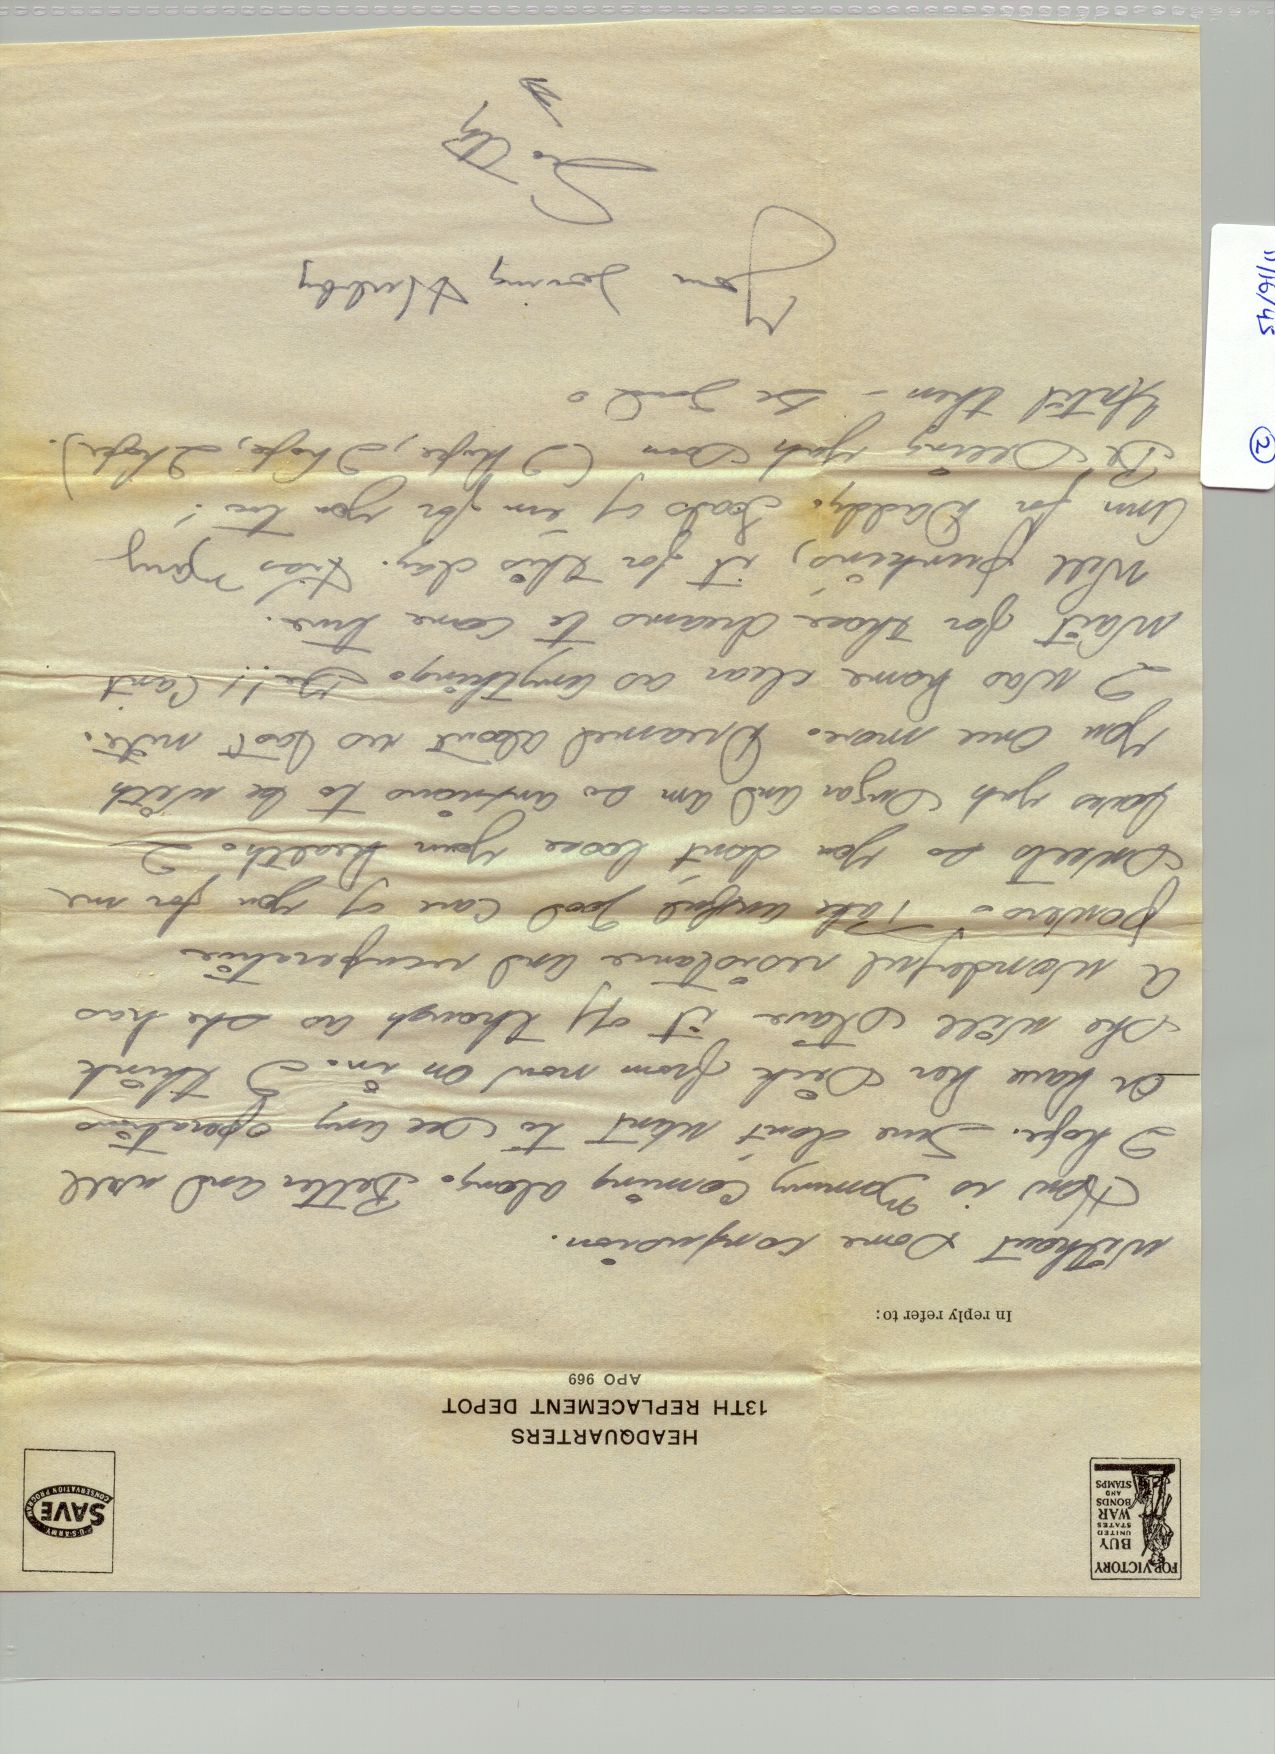 FOR VICTORY
BUY
UNITED
STATES
WAR
BONDS
AND
STAMPS
U·S·ARMY
SAVE
CONSERVATION PROGRAM
HEADQUARTERS
13TH REPLACEMENT DEPOT
APO 969
In reply refer to:
Without some confusion.
How is Mommy coming along. Better and well
I hope. Sure don't want to see any operations
or have her sick from now on in. I think
she will stave it off though as she has
a wonderful resistance and recuperative
powers. Take awful good care of you for me
Sweets so you don't loose your health. I
loves yah Sugar and am so anxious to be with
you once more. Dreamed about us last nite.
I was home clear as anything. Gee!! Can't
wait for those dreams to come true.
Well Punkins, it for this day. Kiss Mary
Ann for Daddy. Loads of em for you too!
Be seeing yah soon (I hope, I hope, I hope).
Until then - be good.
Your Loving Hubby
11/16/45
2